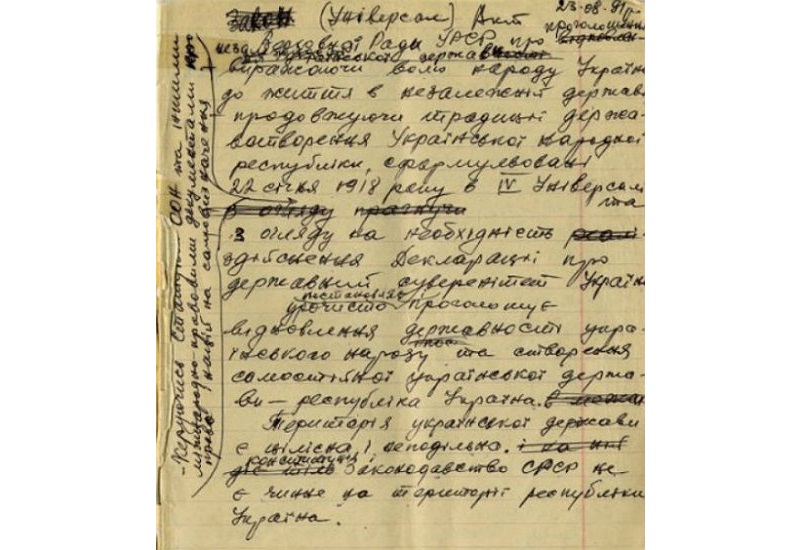 23-08-91 р.
Закон (Універсал) Акт проголошення
Верховної Ради УРСР про
неза української держав
виражаючи волю народу Україн
до життя в незалежній державі
- продовжуючи традиції держа-
вотворення Української народної
республіки, сформульовані
22 січня 1918 року в IV Універсалі
та
з огляду прагнучи
З огляду на необхідність
здійснення Декларації про
державний суверенітет Україн
постановляє
урочисто проголошує
відновлення державності укра-
їнського народу та створення
самостійної української держа-
ви – республіка Україна.
Територія української держави
є цілісна і неподільна. і на ній
конституція і
діє тіль Законодавство СРСР не
є чинне на території республіки
Україна.
- Керуючись Статутом ООН та іншими
міжнародно-правовими документами про
право націй на самовизначення